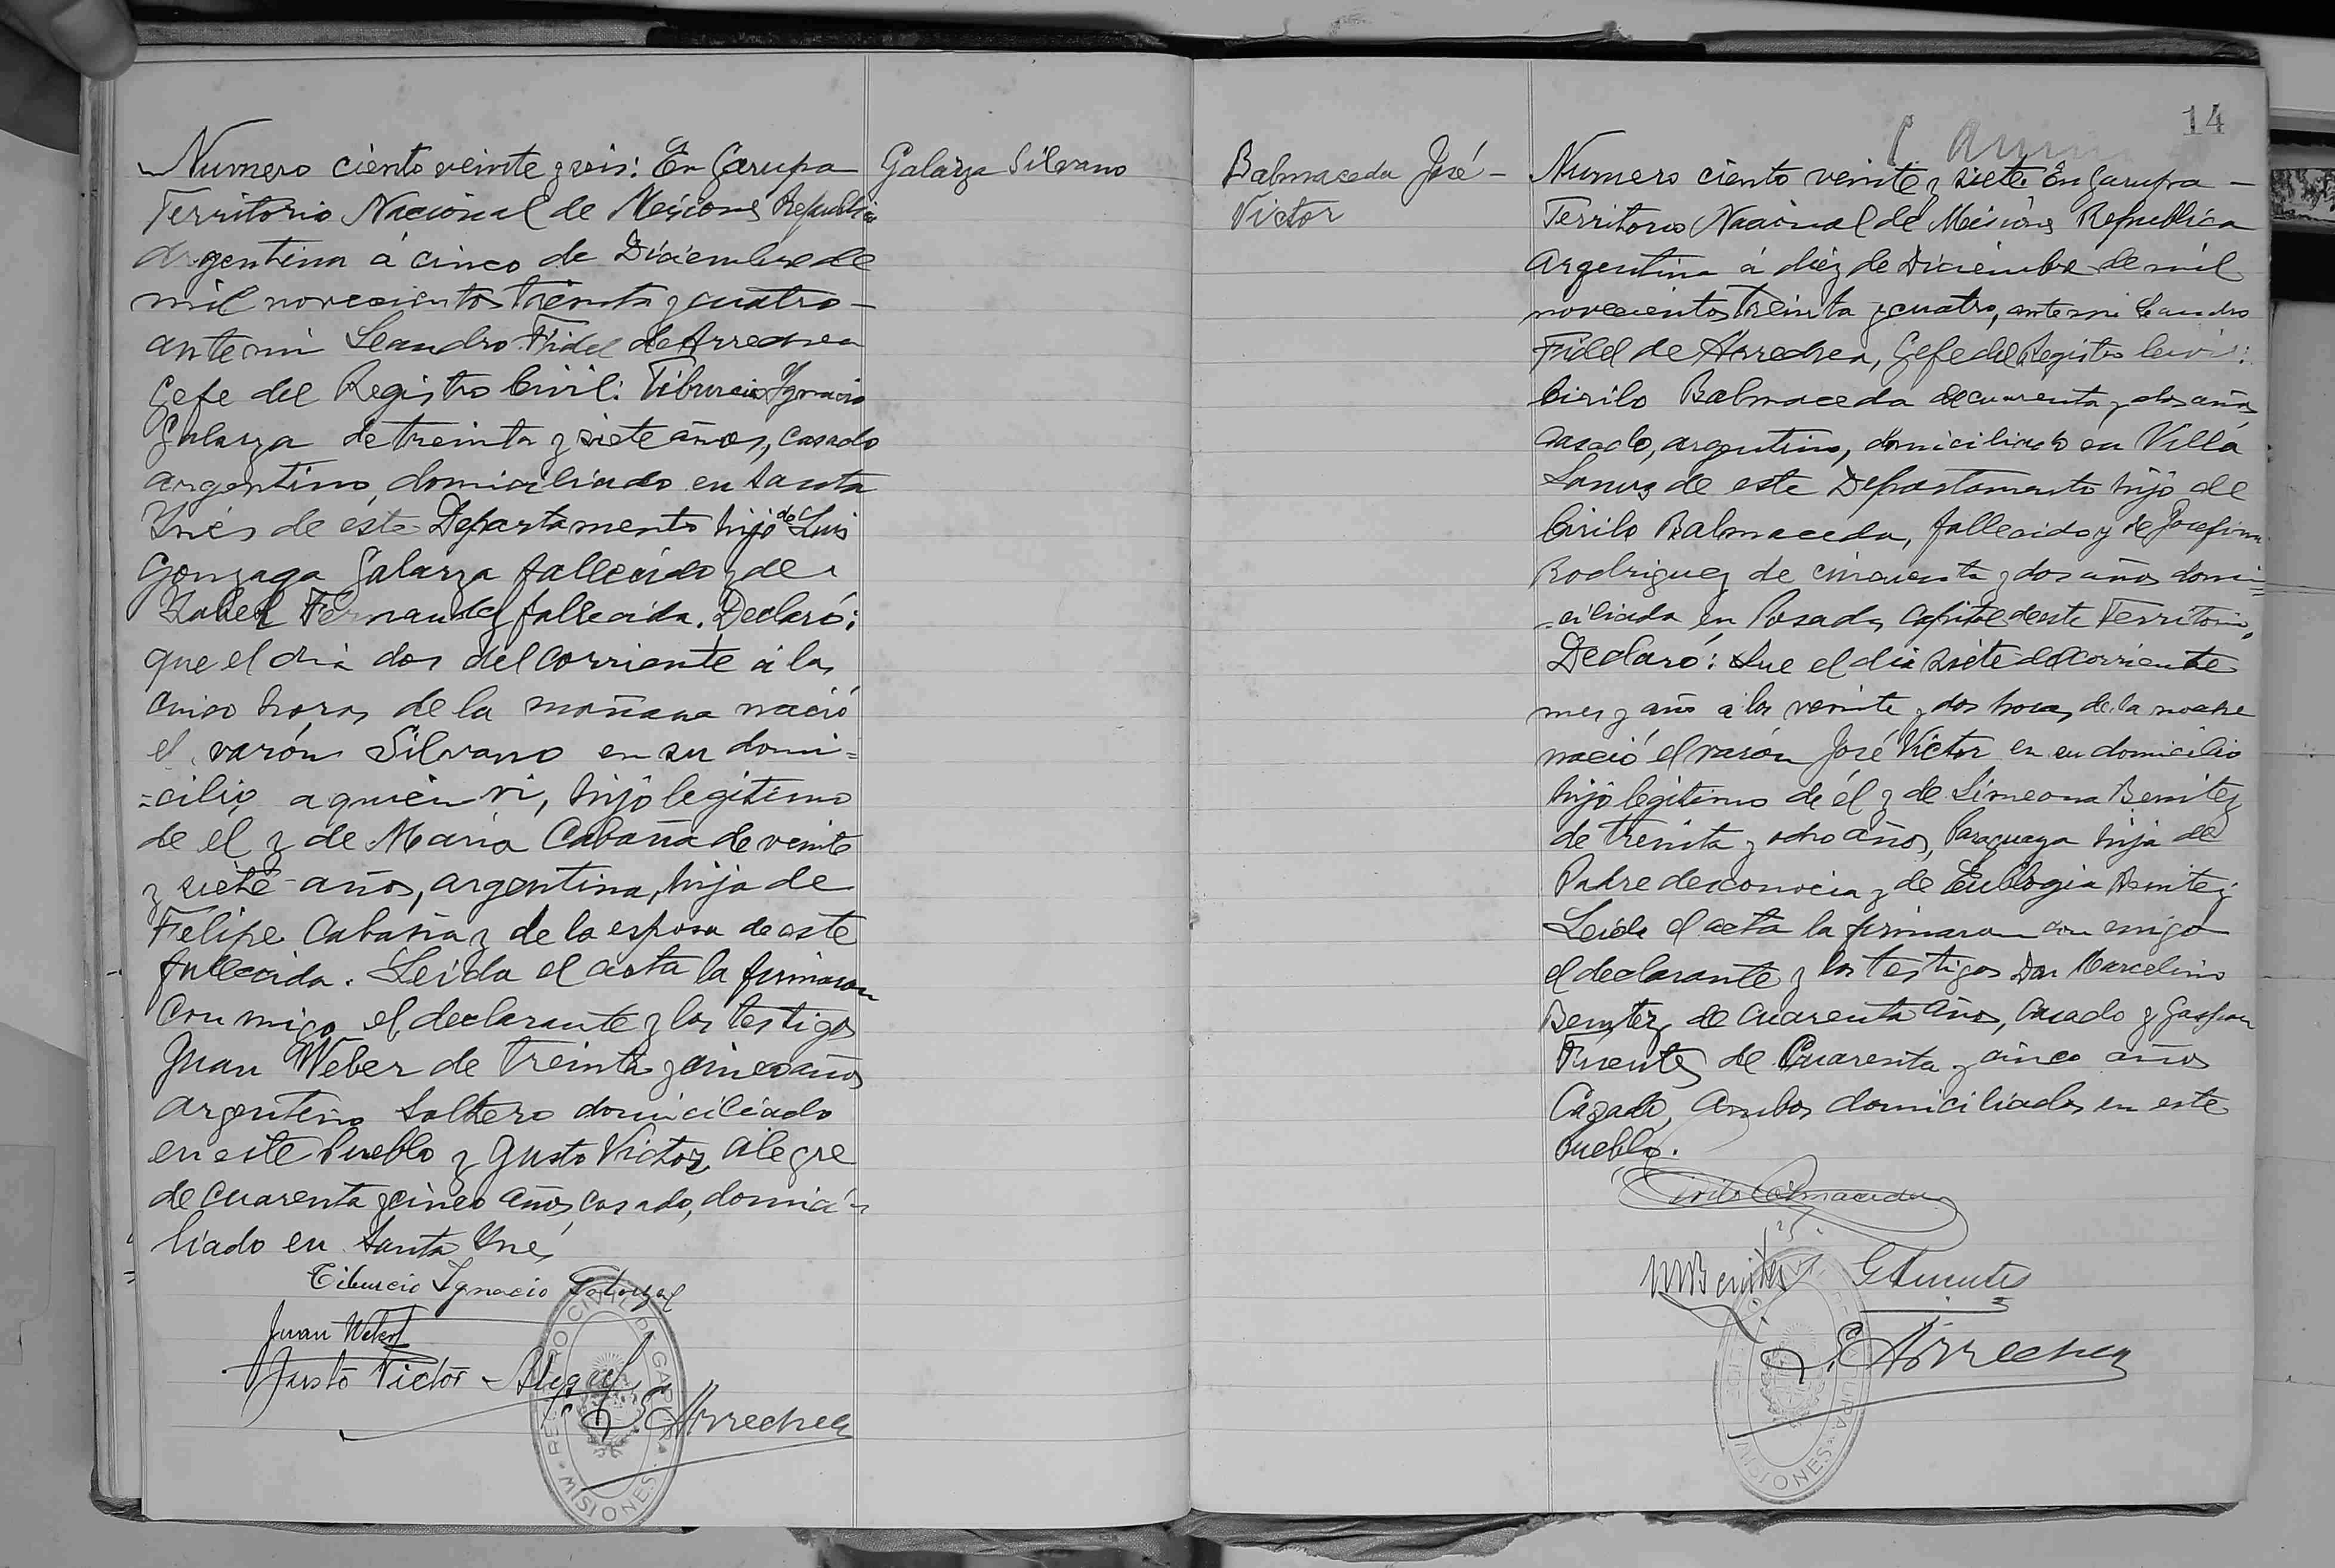 Numero ciento veinte y seis: En Garupa
Territorio Nacional de Misiones Republica
Argentina á cinco de Diciembre de
mil novecientos treinta y cuatro -
ante mi Leandro Fidel de Arrechea
Gefe del Registro Civil: Tiburcio Ygnacio
Galarza de treinta y siete años, casado
argentino, domiciliado en Santa
Ynés de este Departamento hijo de Luis
Gonzaga Galarza fallecido y de
Ysabel Fernandez fallecida. Declaró:
que el dia dos del corriente á las
cinco horas de la mañana nació
el varón Silvano en su domi=
=cilio, a quien vi, hijo legitimo
de el y de Maria Cabaña de veinte
y siete años, argentina, hija de
Felipe Cabaña y de la esposa de este
fallecida. Leida el acta la firmaron
con migo el declarante y los testigos
Juan Weber de treinta y cinco años
argentino soltero domiciliado
en este Pueblo y Gusto Victor Alegre
de cuarenta y cinco años, casado, domici-
liado en Santa Yné,
Tiburcio Ygnacio Galarza
Juan Weber
Justo Victor Alegre
L. F. Arrechea
REGISTRO CIVIL DE GARUPA
MISIONES
Galarza Silvano
Balmaceda José -
Victor
14
Numero ciento veinte y siete. En Garupa -
Territorio Nacional de Misiones Republica
Argentina á diéz de Diciembre de mil
novecientos treinta y cuatro, ante mi Leandro
Fidel de Arrechea, Gefe del Registro Civil:
Cirilo Balmaceda de cuarenta y dos años
casado, argentino, domiciliado en Villa
Lanus de este Departamento hijo de
Cirilo Balmaceda, fallecido y de Josefina
Rodriguez de cincuenta y dos años domi=
=ciliada en Posadas Capital de este Territorio,
Declaró: Que el dia siete del corriente
mes y año a las veinte y dos horas de la noche
nació el varón José Victor en su domicilio
hijo legitimo de él y de Simeona Benitez
de treinta y ocho años, Paraguaya hija de
Padre desconocia y de Eublogia Benitez.
Leida el acta la firmaron con migo
el declarante y los testigos Don Marcelino
Benitez de cuarenta años, casado y Gaspar
Fuentes de cuarenta y cinco años
Casado, ambos domiciliados en este
Pueblo.
Cirilo Balmaceda
M Benitez G Fuentes
L. F. Arrechea
MISIONES